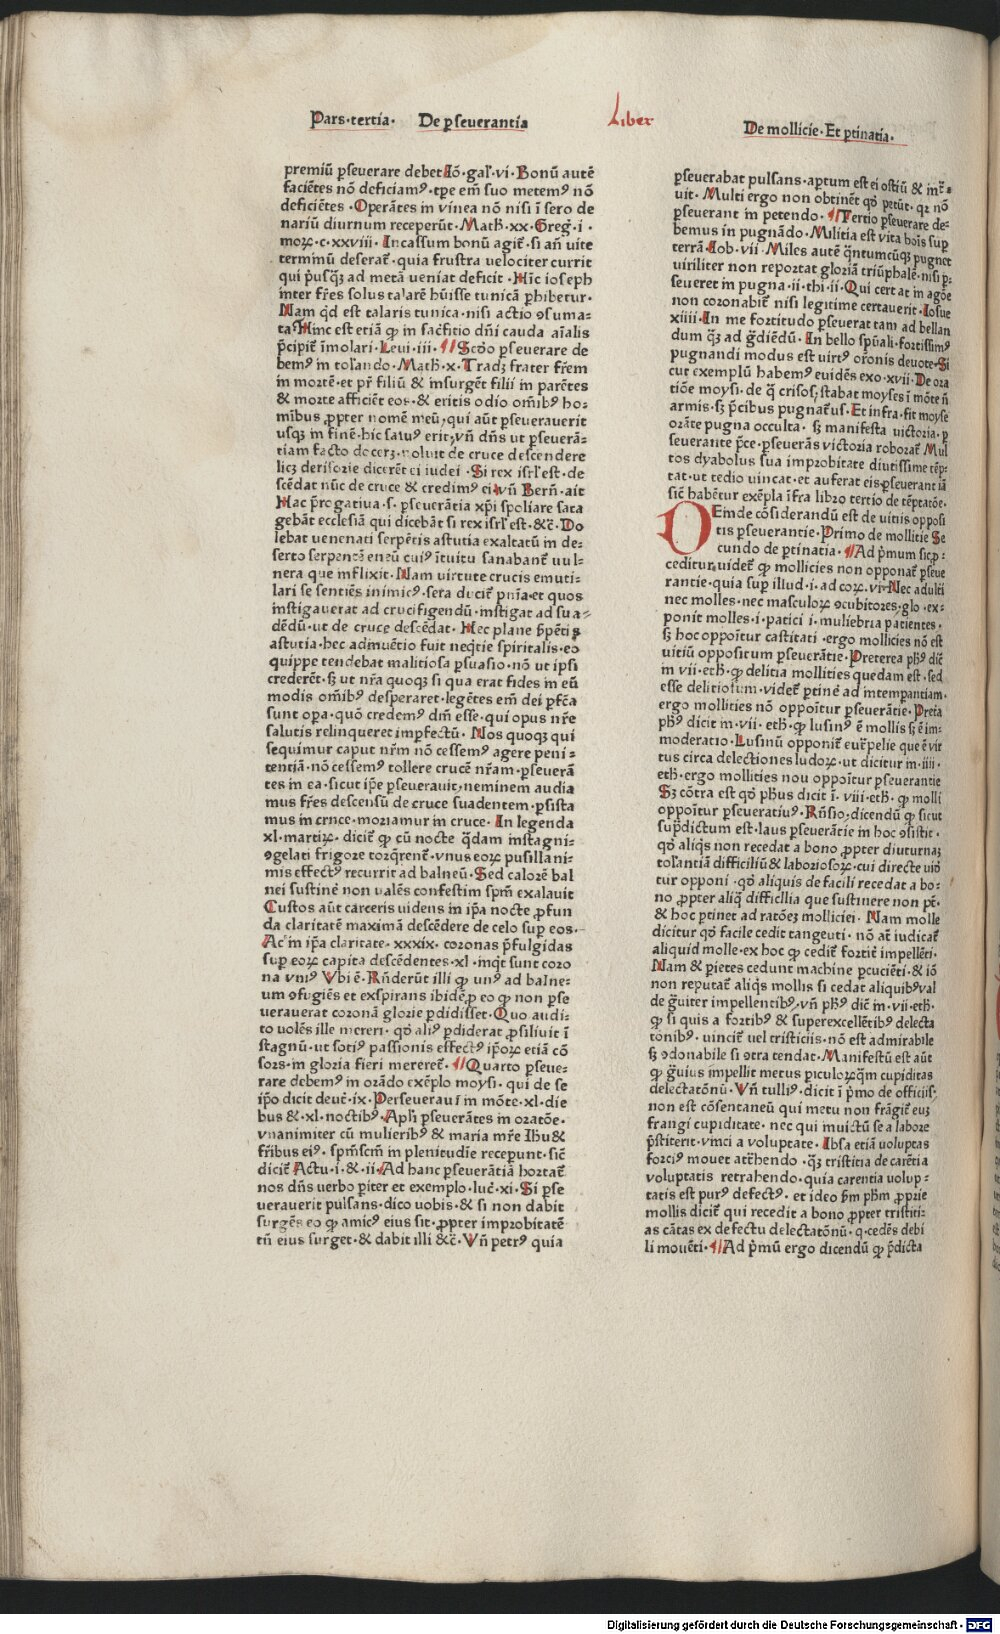 Pars·tertia· De ꝑseuerantia
Liber
De mollicie·Et ꝑtinatia·
premiū ꝑseuerare debet Iō·gal̓·vi·Bonū autē
faciētes nō deficiamꝰ·tꝑe em̄ suo metemꝰ nō
deficiētes·Operātes in vinea nō nisi ī sero de
nariū diurnum receperūt·Math̓·xx·Greg̓·i·
moꝝ·c·xxviii·Incassum bonū agit̄·si an̄ uite
terminū deserat̄·quia frustra velociter currit
qui p̓usqꝫ ad metā veniat deficit·Hīc ioseph
inter fr̄es solus talarē h̓uisse tunicā ꝑhibetur·
Nam qd̓ est talaris tunica·nisi actio ꝯsuma-
ta·Hinc est etiā ꝙ in sac̓fitio dn̄i cauda aīalis
p̄cipit̄ īmolari·Leui·iii·¶Scd̓o ꝑseuerare de
bemꝰ in tol̓ando·Math̓·x·Tradꝫ frater fr̄em
in mortē·et pr̄ filiū & insurgēt filii in parētes
& morte afficiēt eos·& eritis odio om̄ibꝰ ho-
mībus ꝓpter nomē meū·qui aūt ꝑseuerauerit
usqꝫ in finē·hic saluꝰ erit·vn̄ dn̄s ut ꝑseuerā-
tiam facto docerꝫ·noluit de cruce descendere
licꝫ derisorie dicerēt ei iudei·Si rex isrl̓ est·de
scēdat nūc de cruce & credimꝰ ei·vn̄ Bern̄·ait
Hac p̄rogatiua·s·ꝑseuerātia xp̄i spoliare sata
gebāt ecclesiā qui dicebāt si rex isrl̓ est·&c̄·Do
lebat uenenati serpētis astutia exaltatū in de-
serto serpentē eneū cuiꝰ ītuitu sanabant̄ uul-
nera que inflixit·Nam uirtute crucis emuti-
lari se sentiēs inimicꝰ·sera ducit̄ pn̄ia·et quos
instigauerat ad crucifigendū·instigat ad sua-
dēdū·ut de cruce descēdat·Hec plane ẜpētis
astutia·hec adinuētio fuit neq̄tie spiritalis·eo
quippe tendebat malitiosa ꝑsuasio·nō ut ipsi
crederēt·sꝫ ut nr̄a quoqꝫ si qua erat fides in eū
modis om̄ibꝰ desperaret·legētes em̄ dei ꝑfc̄a
sunt oꝑa·quō credemꝰ dm̄ esse·qui opus nr̄e
salutis relinqueret imꝑfectū·Nos quoqꝫ qui
sequimur caput nr̄m nō cessemꝰ agere peni-
tentiā·nō cessemꝰ tollere crucē nr̄am·ꝑseuerā
tes in ea·sicut ip̄e ꝑseuerauit·neminem audia
mus fr̄es descensū de cruce suadentem·ꝑsista
mus in cruce·moriamur in cruce·In legenda
xl·martiꝝ·dicit̄ ꝙ cū nocte q̄dam in stagni-
ꝯgelati frigore torq̄rent̄·vnus eoꝝ pusillani-
mis effectꝰ recurrit ad balneū·Sed calorē bal
nei sustinē non valēs confestim spm̄ exalauit
Custos aūt carceris uidens in ip̄a nocte ꝓfun
da claritatē maximā descēdere de celo suꝑ eos·
Ac in ip̄a claritate·xxxix·coronas p̄fulgidas
suꝑ eoꝝ capita descēdentes·xl·inq̄t sunt coro
na vniꝰ Vbi ē·Rn̄derūt illi ꝙ unꝰ ad balne-
um ꝯfugiēs et exspirans ibidē·ꝑ eo ꝙ non ꝑse
uerauerat coronā glorie ꝑdidisset·Quo audi-
to uolēs ille mereri·qd̓ aliꝰ ꝑdiderat ꝓsiliuit ī
stagnū·ut sotiꝰ passionis effectꝰ ip̄oꝝ etiā cō
sors·in gloria fieri mereret̄·¶Quarto ꝑseue-
rare debemꝰ in orādo exēplo moysi·qui de se
ip̄o dicit deut̄·ix·Perseuerauī in mōte·xl·die
bus &·xl·noctibꝰ·Apl̓i ꝑseuerātes in oratōe·
vnanimiter cū mulieribꝰ & maria mr̄e Ih̓u &
fr̄ibus eiꝰ·spm̄scm̄ in plenitudie receperunt·sic̄
dicit̄ Actu·i·& ii·Ad hanc ꝑseuerātiā hortat̄
nos dn̄s uerbo ꝑiter et exemplo·luc̄·xi·Si ꝑse
uerauerit pulsans·dico uobis·& si non dabit
surgēs eo ꝙ amicꝰ eius sit·ꝓpter improbitatē
tn̄ eius surget·& dabit illi &c̄·Vn̄ petrꝰ quia
ꝑseuerabat pulsans·apertum est ei ostiū & int̄a-
uit·Multi ergo non obtinēt qd̓ petūt·qꝛ nō
ꝑseuerant in petendo·¶Tertio ꝑseuerare de-
bemus in pugnādo·Militia est vita hoīs suꝑ
terrā Iob·vii·Miles autē q̄ntumcūqꝫ pugnet
uiriliter non reportat gloriā triūphalē·nisi ꝑ-
seueret in pugna·ii·thi·ii·Qui certat in agōe
non coronabit̄ nisi legitime certauerit·Iosue
xiiii·In me fortitudo ꝑseuerat tam ad bellan
dum q̄ꝫ ad g̓diēdū·In bello sp̄uali·fortissimꝰ
pugnandi modus est uirtꝰ or̄onis deuote·Si
cut exemplū habemꝰ euidēs exo·xvii·De ora
tiōe moysi·de q̄ crisos;·stabat moyses ī mōte n̄
armis·sꝫ p̄cibus pugnat̄us·Et infra·fit moyse
orāte pugna occulta·sꝫ manifesta uictoria·ꝑ
seuerante p̄ce·ꝑseuerās victoria roborat̄ Mul
tos dyabolus sua improbitate diutissime tēp-
tat·ut tedio uincat·et auferat eis ꝑseuerantiā
sic̄ habētur exēpla īfra libro tertio de tēptatōe·
DEinde cōsiderandū est de uitiis opposi
tis ꝑseuerantie·Primo de mollitie Se
cundo de ꝑtinatia·¶Ad p̓mum sic ꝓ-
ceditur·uidet̄ ꝙ mollicies non opponat̄ ꝑseue
rantie·quia suꝑ illud·i·ad coꝝ·vi·Nec adulti
nec molles·nec masculoꝝ ꝯcubitores·glo·ex-
ponit molles·i·patici i·muliebria patientes·
sꝫ hoc opponītur castitati·ergo mollicies nō est
uitiū oppositum ꝑseuerātie·Preterea ph̓s dic̄
in vii·eth̓·ꝙ delitia mollities quedam est·sed
esse delitiosum·videt̄ ꝑtinē ad intemꝑantiam·
ergo mollities nō oppoītur ꝑseuerātie·Preta
ph̓s dicit in·vii·eth̓·ꝙ lusinꝰ ē mollis sꝫ ē im-
moderatio·Lusinū opponit̄ eutr̄pelie que ē vir
tus circa delectiones ludoꝝ·ut dicitur in·iiii·
eth̓·ergo mollities nou oppoītur ꝑseuerantie
Sꝫ cōtra est qd̓ ph̓us dicit ī·viii·eth̓·ꝙ molli
oppoītur ꝑseueratiuꝰ·Rn̄sio·dicendū ꝙ sicut
sup̄dictum est·laus ꝑseuerātie in hoc ꝯsistit·
qd̓ aliqs̓ non recedat a bono ꝓpter diuturnaꝫ
tol̓antiā difficiliū & laborioroꝝ·cui directe uid̓
tur opponi·qd̓ aliquis de facili recedat a bo-
no ꝓpter aliq̄ difficllia que sustinere non pt̄·
& hoc ꝑtinet ad ratōeꝫ molliciei·Nam molle
dicitur qd̓ facile cedit tangeuti·nō at̄ iudicat̄
aliquid molle·ex hoc ꝙ cedit̄ fortit̄ impellēti·
Nam & ꝑietes cedunt machine ꝑcuciēti·& iō
non reputat̄ aliqs̓ mollis si cedat aliquibꝰ val
de g̓uiter impellentibꝰ·vn̄ ph̓s dic̄ in·vii·eth̓·
ꝙ si quis a fortibꝰ & superexcellētibꝰ delecta
tonibꝰ·uincit̄ uel tristiciis·nō est admirabile
sꝫ ꝯdonabile si ꝯtra tendat·Manifestū est aūt
ꝙ g̓uius impellit metus ꝑiculoꝝ qm̄ cupiditas
delectatōnū·Vn̄ tulliꝰ·dicit ī p̓mo de officiis;
non est cōsentaneū qui metu non frāgit̄ euꝫ
frangi cupiditate·nec qui inuictū se a labore
p̄stiterit·vinci a voluptate·Ibsa etiā uoluptas
forciꝰ mouet att̓hendo·q̄ꝫ tristitia de carētia
voluptatis retrahendo·quia carentia uolup-
tatis est purꝰ defectꝰ·et ideo ẜm ph̓m ꝓprie
mollis dicit̄ qui recedit a bono ꝓpter tristiti-
as cātas ex defectu delectatōnū·q·cedēs debi
li mouēti·¶Ad p̓mū ergo dicendū ꝙ p̄dicta
Digitalisierung gefördert durch die Deutsche Forschungsgemeinschaft - DFG